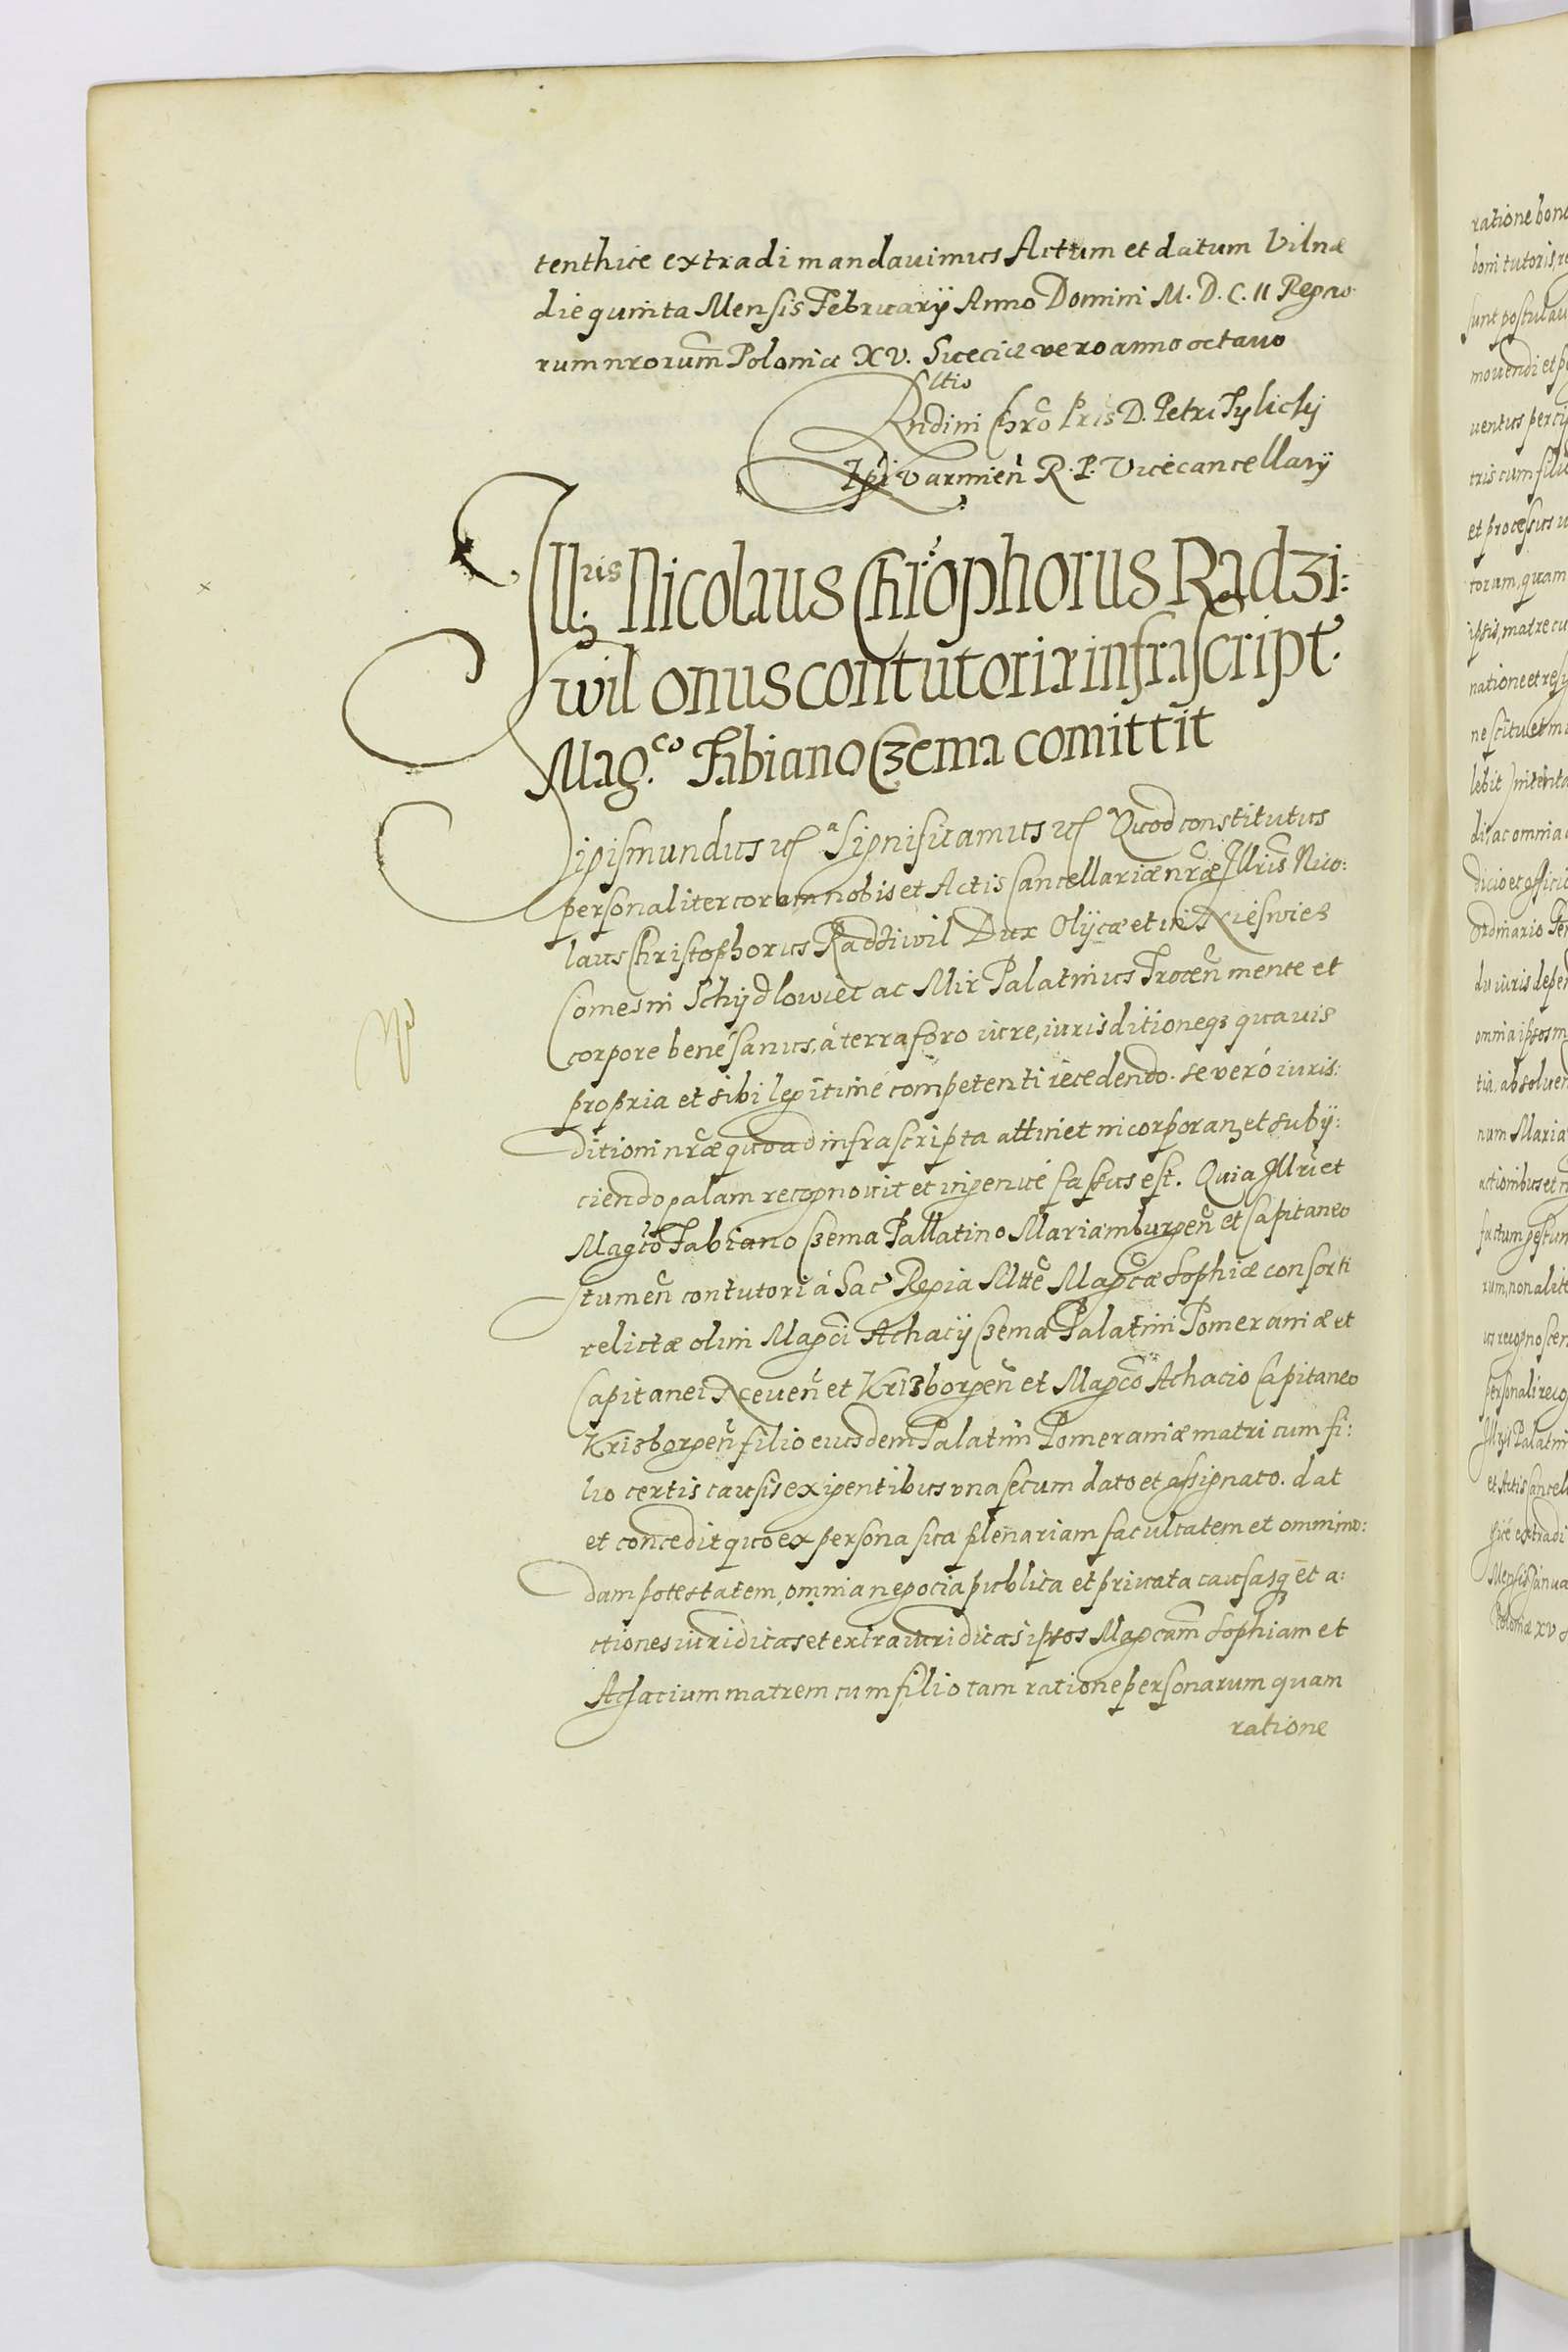 tenthice extradi mandauimus Actum et datum Vilnæ
die quinta Mensis Februarÿ Anno Domini M. D. C. II Regno
rum nrorum Poloniæ XV. Sueciæ vero anno octauo
Rltio
Rndini Chro Pris D. Petri Tÿlickÿ
Epi Varmien R. P. Vicecancellarÿ
Illris Nicolaus Chrophorus Radzi:
wil onus contutoriæ infrascript.
Mag.co Fabiano Czema comittit
Sigismundus etc.a Significamus etc. Quod constitutus
personaliter coram nobis et Actis Cancellariæ nræ Illris Nico:
laus Christophorus Radziwil Dux Olÿcæ et in Nieswies
Comes in Schÿdlowiec ac Mir Palatinus Trocen mente et
corpore bene sanus, à terra foro iure, iurisditioneq3 quauis
propria et sibi legitimé competenti recedendo. se veró iuris:
ditioni nræ quoad infrascripta attinet incorporan3 et subÿ:
ciendo palam recognouit et ingenué fassus est. Quia Illri et
Magco Fabiano Czema Pallatino Mariamburgen et Capitaneo
Stumen contutori à Sac Regia Mtte Magcæ Sophiæ consorti
relictæ olim Magci Achacÿ Czema Palatini Pomeraniæ et
Capitanei Neuen et Kri3borgen et Magco Achacio Capitaneo
Kri3borgen filio eiusdem Palatini Pomeraniæ matri cum fi:
lio certis causis exigentibus vna secum dato et assignato. dat
et concedit quo ex persona sua plenariam facultatem et omnimo:
dam potestatem, omnia negocia publica et priuata causasq3 et a:
ctiones iuridicas et extraiuridicas ipsos Magcam Sophiam et
Achacium matrem cum filio tam ratione personarum quam
ratione